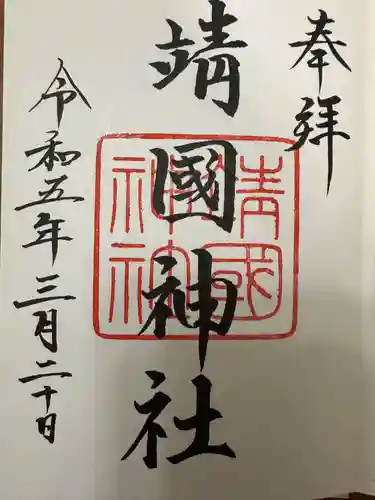 奉拝
靖國神社
靖國
神社
令和五年三月二十日